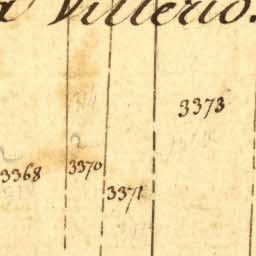 a Villerio.
3373
3368
3370
3371